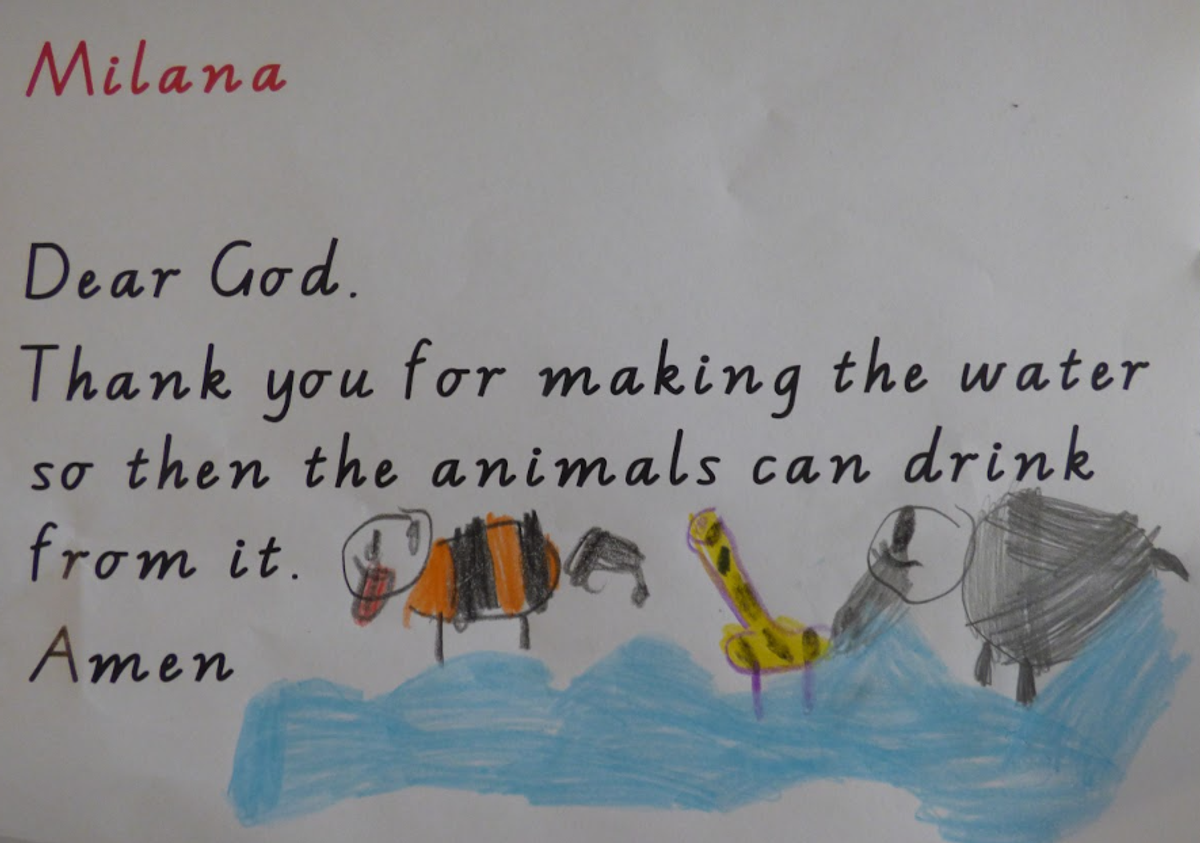 Milana
Dear God.
Thank you for making the water
so then the animals can drink
from it.
Amen